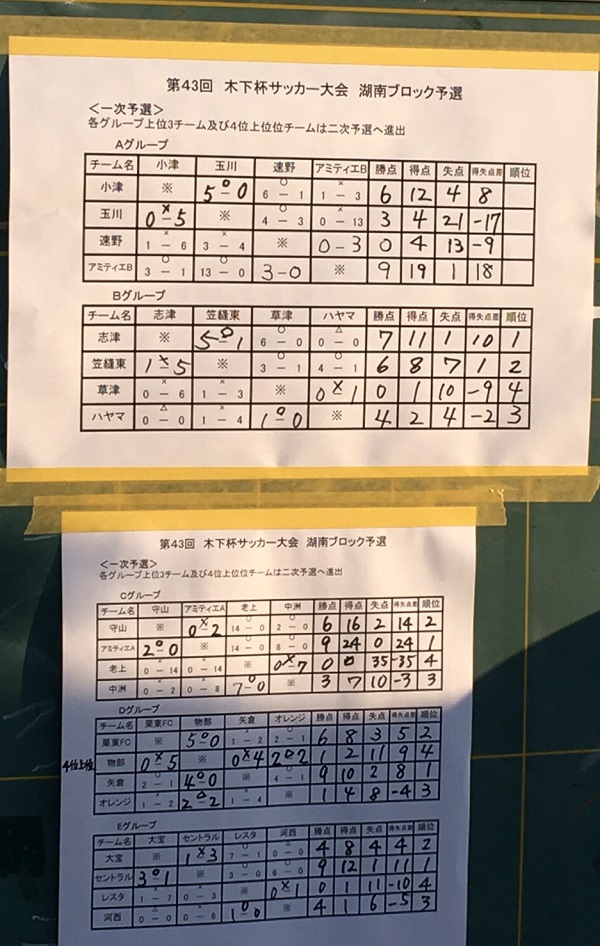 第43回 木下杯サッカー大会 湖南ブロック予選
＜一次予選＞
各グループ上位3チーム及び4位上位位チームは二次予選へ進出
Aグループ
チーム名 小津 玉川 速野 アミティエB 勝点 得点 失点 得失点差 順位
小津 ※ 5○0 ○6－1 ×1－3 6 12 4 8
玉川 0×5 ※ ○4－3 ×0－13 3 4 21 -17
速野 ×1－6 ×3－4 ※ 0－3 0 4 13 -9
アミティエB ○3－1 ○13－0 3-0 ※ 9 19 1 18
Bグループ
チーム名 志津 笠縫東 草津 ハヤマ 勝点 得点 失点 得失点差 順位
志津 ※ 5○1 ○6－0 △0－0 7 11 1 10 1
笠縫東 1×5 ※ ○3－1 ○4－1 6 8 7 1 2
草津 ×0－6 ×1－3 ※ 0×1 0 1 10 -9 4
ハヤマ △0－0 ×1－4 1○0 ※ 4 2 4 -2 3
第43回 木下杯サッカー大会 湖南ブロック予選
＜一次予選＞
各グループ上位3チーム及び4位上位位チームは二次予選へ進出
Cグループ
チーム名 守山 アミティエA 老上 中洲 勝点 得点 失点 得失点差 順位
守山 ※ 0×2 ○14－0 ○2－0 6 16 2 14 2
アミティエA 2○0 ※ ○14－0 ○8－0 9 24 0 24 1
老上 ×0－14 ×0－14 ※ 0×7 0 0 35 -35 4
中洲 ×0－2 ×0－8 7○0 ※ 3 7 10 -3 3
Dグループ
チーム名 栗東FC 物部 矢倉 オレンジ 勝点 得点 失点 得失点差 順位
栗東FC ※ 5○0 ×1－2 ○2－1 6 8 3 5 2
4位上位 物部 0×5 ※ 0×4 2△2 1 2 11 9 4
矢倉 ○2－1 4○0 ※ ○4－1 9 10 2 8 1
オレンジ ×1－2 2△2 ×1－4 ※ 1 4 8 -4 3
Eグループ
チーム名 大宝 セントラル レスタ 河西 勝点 得点 失点 得失点差 順位
大宝 ※ 1×3 ○7－1 △0－0 4 8 4 4 2
セントラル 3○1 ※ ○3－0 ○6－0 9 12 1 11 1
レスタ ×1－7 ×0－3 ※ 0×1 0 1 11 -10 4
河西 △0－0 ×0－6 1○0 ※ 4 1 6 -5 3